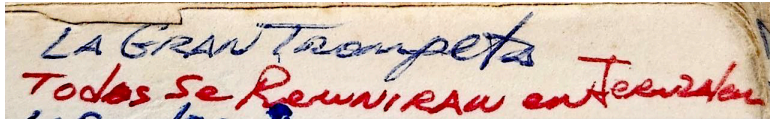 LA GRAN Trompeta
Todos Se ReunIRAN en Jerusalen